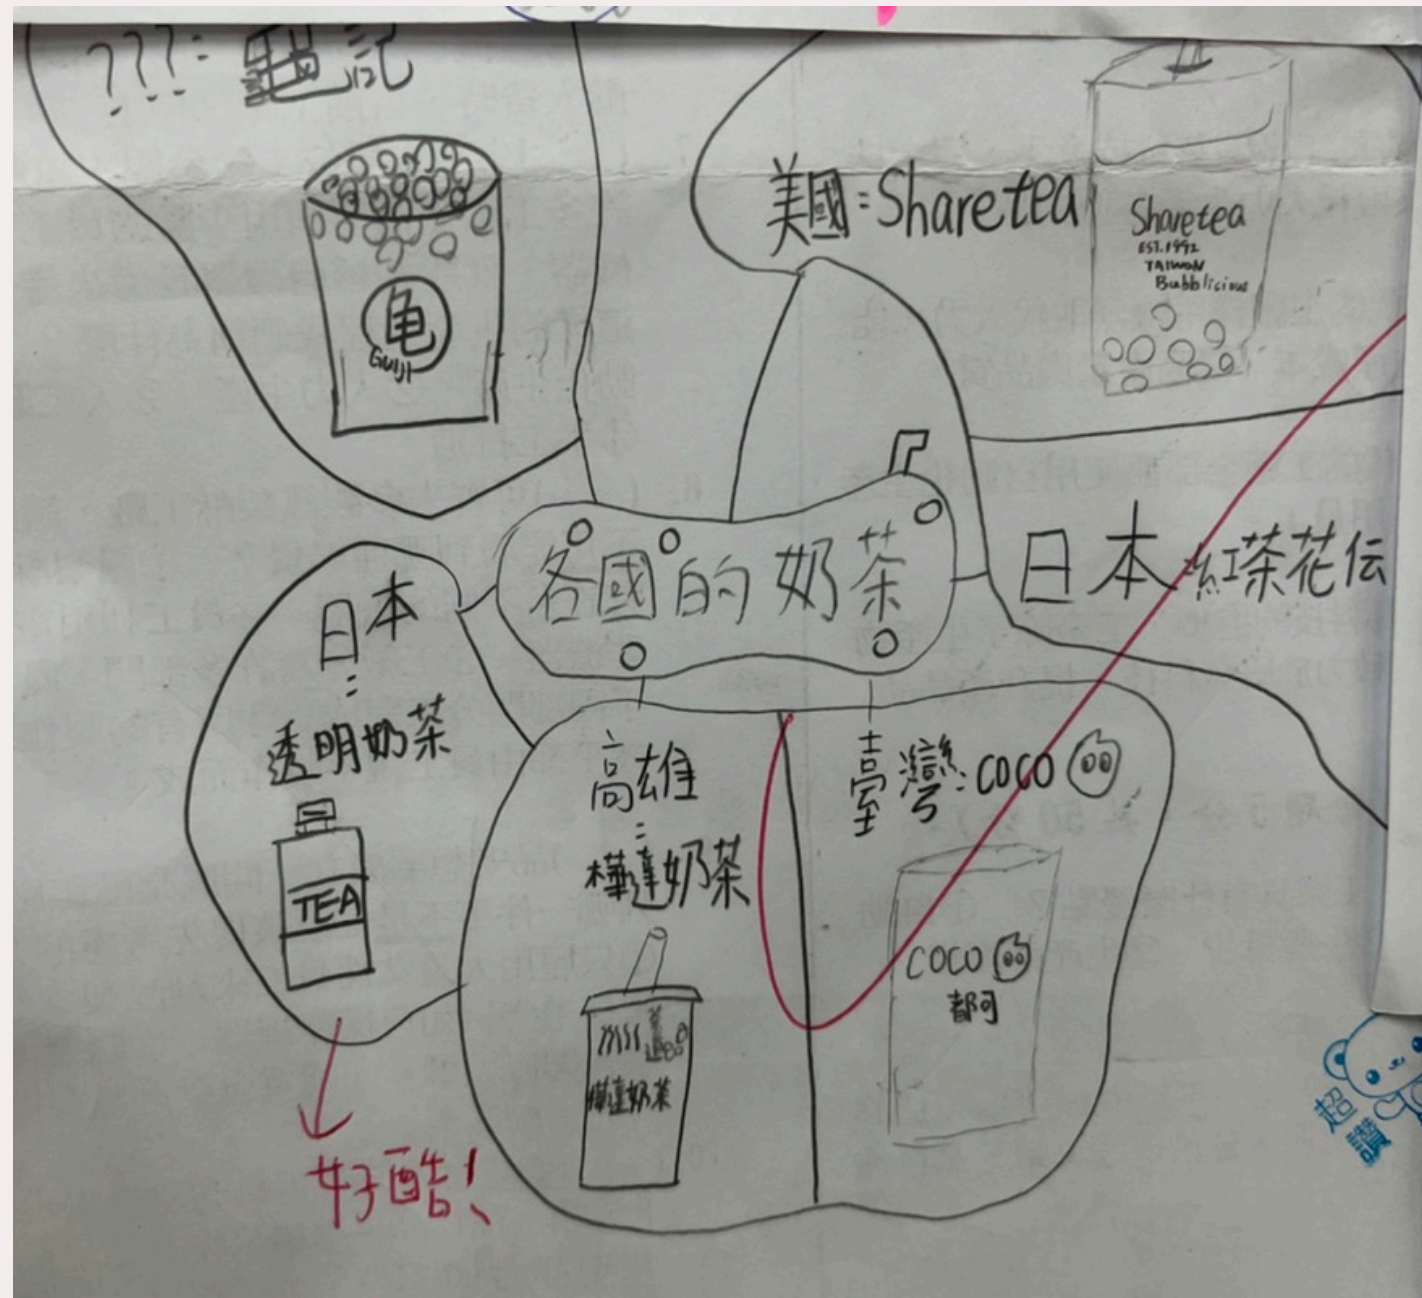 ???: 龜記
龟
GUIJI
美國:Sharetea
Sharetea
EST.1992
TAIWAN
Bubblicious
各國的奶茶
日本 紅茶花伝
日本:
透明奶茶
TEA
好酷!
高雄:
樺達奶茶
樺達奶茶
臺灣:COCO
COCO
都可
超讚